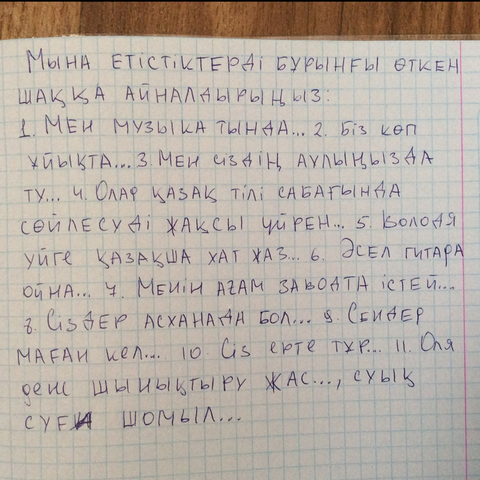 Мына етістіктерді бұрынғы өткен
шаққа айналдырыңыз:
1. Мен музыка тыңда... 2. Біз көп
ұйықта... 3. Мен сіздің ауылыңызда
ту... 4. Олар қазақ тілі сабағында
сөйлесуді жақсы үйрен... 5. Володя
үйге қазақша хат жаз... 6. Әсел гитара
ойна... 7. Менің ағам заводта істей...
8. Сіздер асханада бол... 9. Сендер
маған кел... 10. Сіз ерте тұр... 11. Оля
дене шынықтыру жас..., суық
суға шомыл...